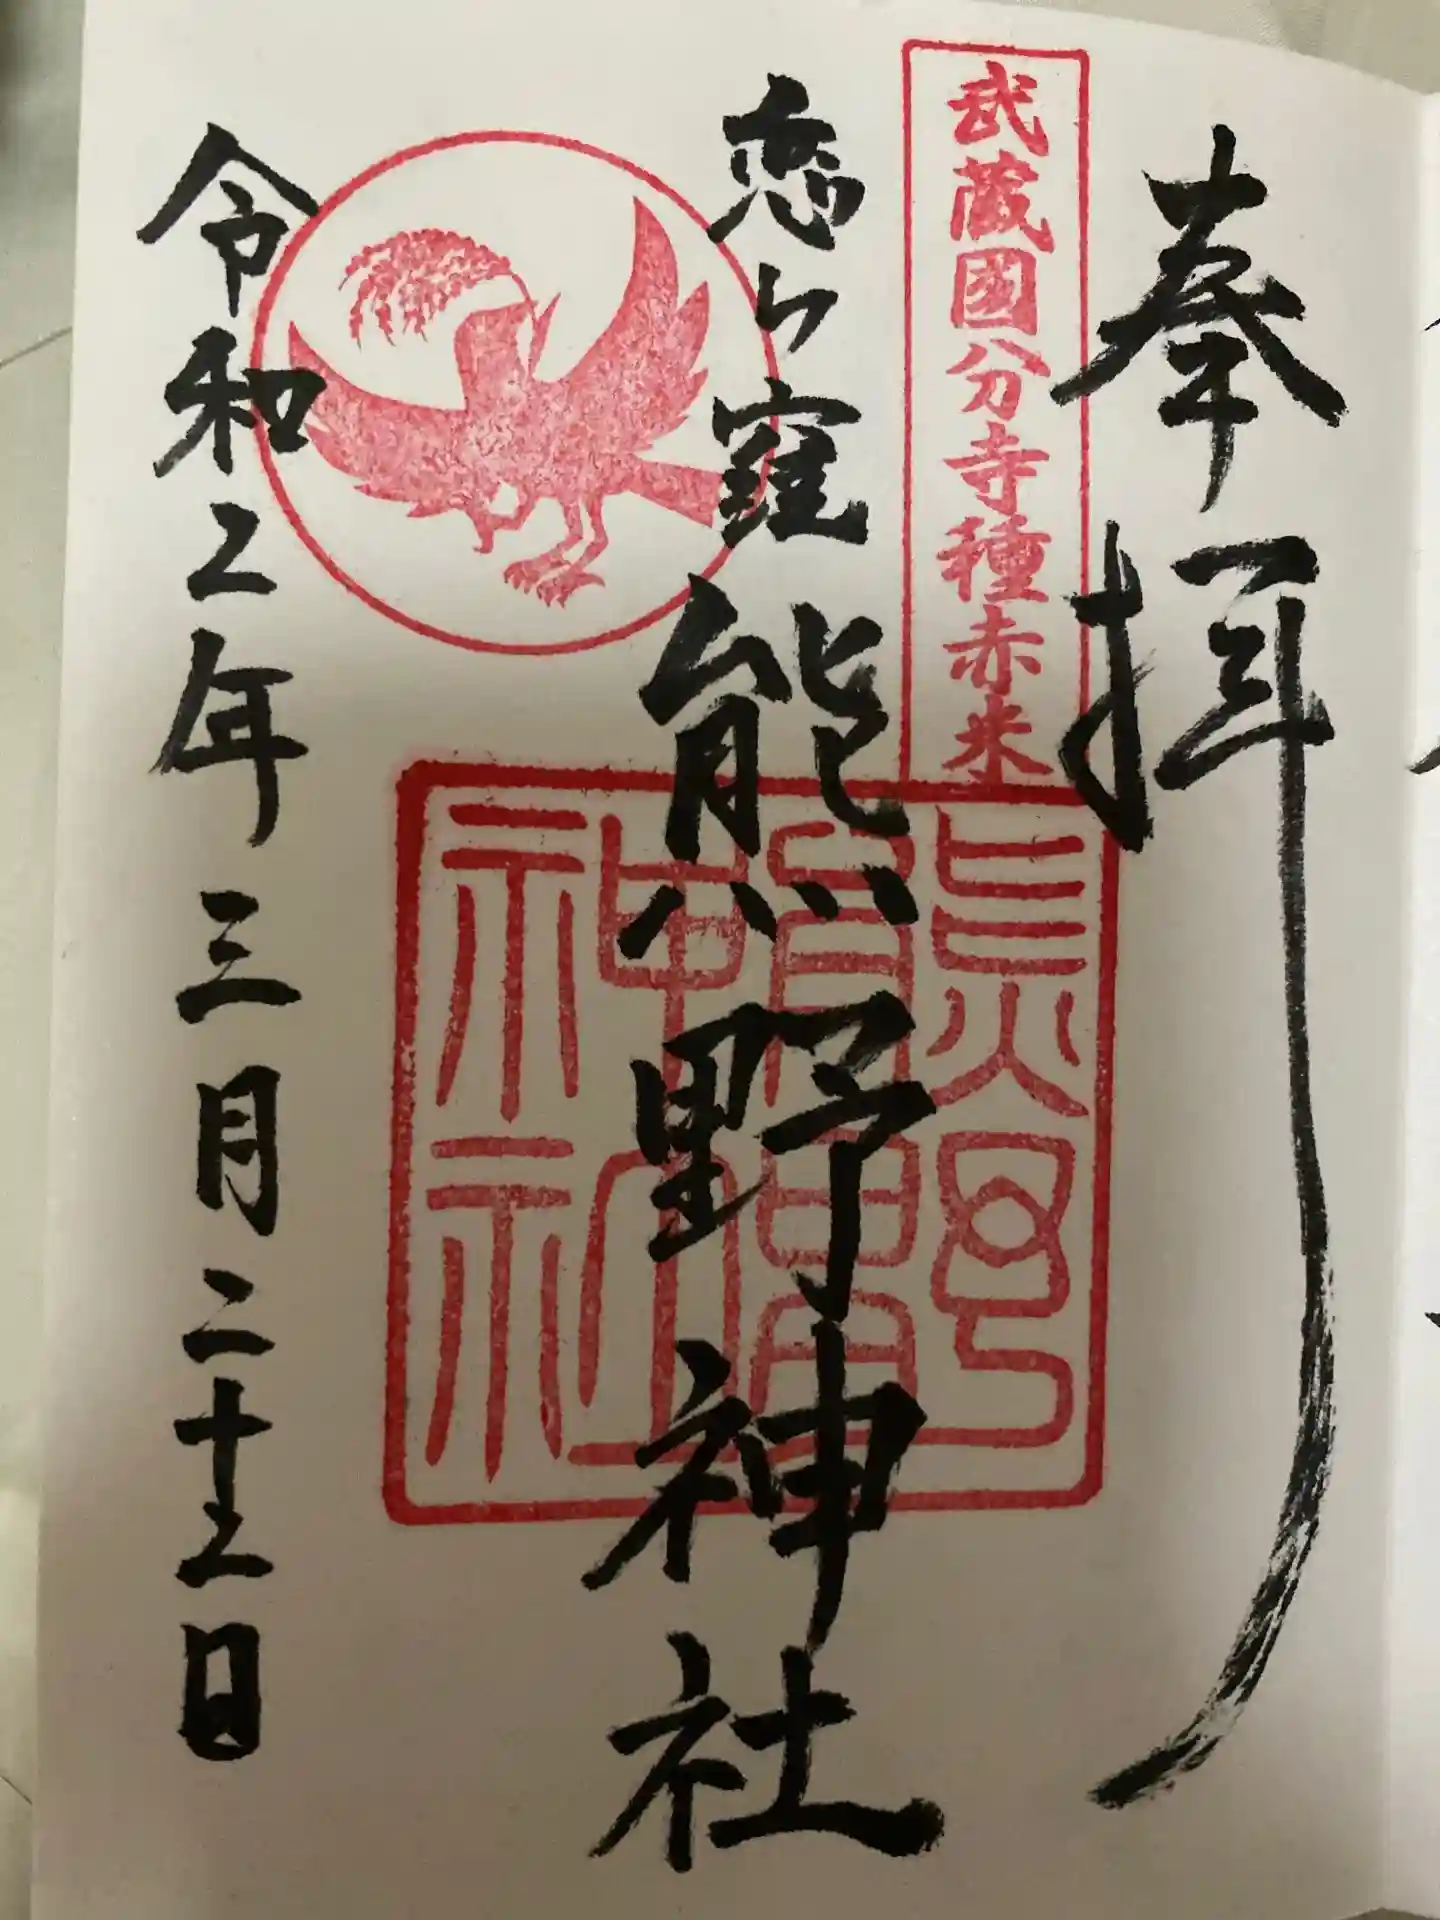 奉拝
武蔵國分寺種赤米
恋ヶ窪熊野神社
熊野
神社
令和乙年三月二十五日